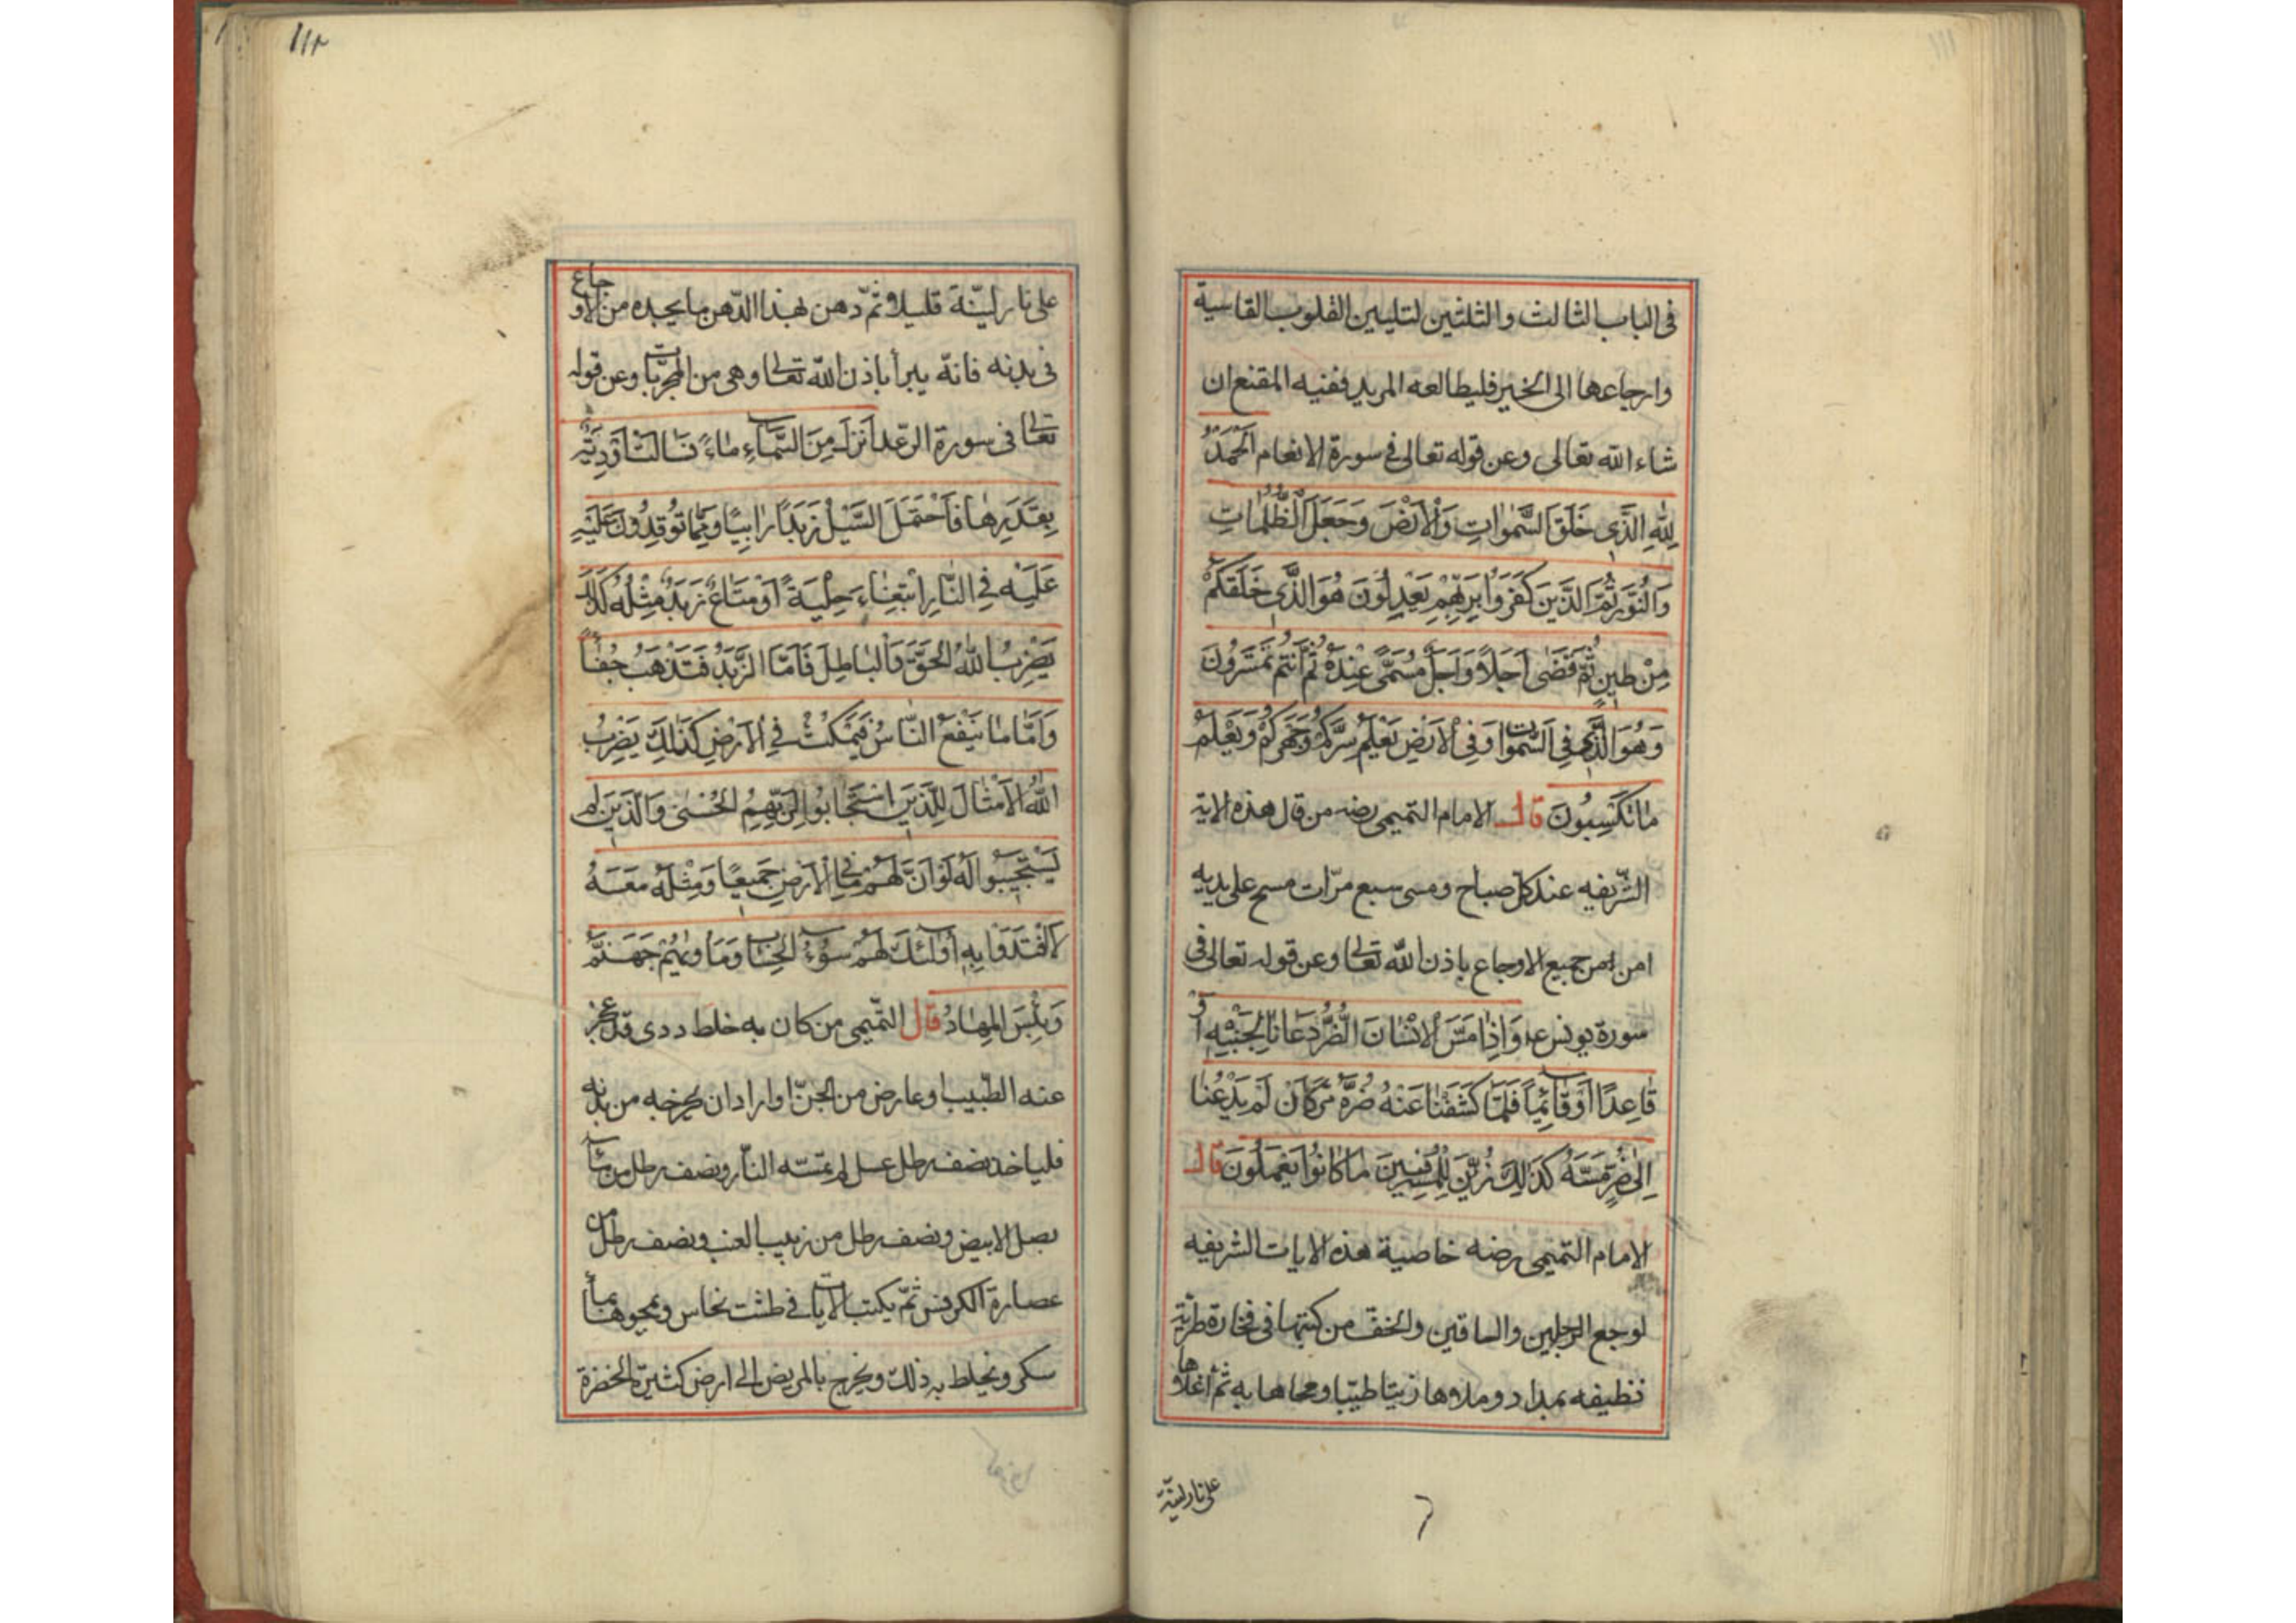 ١١١
في الباب الثالث والثلثين لتليين القلوب القاسية
وارجاعها الى الخير فليطالعه المريد ففيه المقنع ان
شاء الله تعالى وعن قوله تعالى في سورة الانعام اَلْحَمْدُ
لِلّٰهِ الَّذِي خَلَقَ السَّمٰوَاتِ وَالْاَرْضَ وَجَعَلَ الظُّلُمَاتِ
وَالنُّورَ ثُمَّ الَّذِينَ كَفَرُوا بِرَبِّهِمْ يَعْدِلُونَ هُوَ الَّذِي خَلَقَكُمْ
مِنْ طِينٍ ثُمَّ قَضٰى اَجَلًا وَاَجَلٌ مُسَمًّى عِنْدَهُ ثُمَّ اَنْتُمْ تَمْتَرُونَ
وَهُوَ الَّذِي فِي السَّمٰوَاتِ وَفِي الْاَرْضِ يَعْلَمُ سِرَّكُمْ وَجَهْرَكُمْ وَيَعْلَمُ
مَا تَكْسِبُونَ قال الامام التميمي رضه من قال هذه الاية
الشّريفه عند كلّ صباح ومسى سبع مرّات مسح على يديه
امن من جميع الاوجاع باذن اللّه تعالى وعن قوله تعالى في
سورة يونس عم وَاِذَا مَسَّ الْاِنْسَانَ الضُّرُّ دَعَانَا لِجَنْبِهِ اَوْ
قَاعِدًا اَوْ قَائِمًا فَلَمَّا كَشَفْنَا عَنْهُ ضُرَّهُ مَرَّ كَاَنْ لَمْ يَدْعُنَا
اِلٰى ضُرٍّ مَسَّهُ كَذٰلِكَ زُيِّنَ لِلْمُسْرِفِينَ مَا كَانُوا يَعْمَلُونَ قال
الامام التميمى رضه خاصية هذه الايات الشريفه
لوجع الرجلين والساقين والخف من كتبها في فخارة طريّة
نظيفه بمداد وملاوها زيتا طيّبا ومحاها به ثمّ اغلاوها
على نار ليّنة
١١٢
على نار ليّنة قليلا وثمّ دهن بهذا الدّهن ما يجده من الاوجاع
في بدنه فانّه يبرأ باذن اللّه تعالى وهي من المجرّبات وعن قوله
تعالى في سورة الرّعد اَنْزَلَ مِنَ السَّمَاءِ مَاءً فَسَالَتْ اَوْدِيَةٌ
بِقَدَرِهَا فَاحْتَمَلَ السَّيْلُ زَبَدًا رَابِيًا وَمِمَّا تُوقِدُونَ عَلَيْهِ
عَلَيْهِ فِي النَّارِ ابْتِغَاءَ حِلْيَةٍ اَوْ مَتَاعٍ زَبَدٌ مِثْلُهُ كَذٰلِكَ
يَضْرِبُ اللّٰهُ الْحَقَّ وَالْبَاطِلَ فَاَمَّا الزَّبَدُ فَيَذْهَبُ جُفَاءً
وَاَمَّا مَا يَنْفَعُ النَّاسَ فَيَمْكُثُ فِي الْاَرْضِ كَذٰلِكَ يَضْرِبُ
اللّٰهُ الْاَمْثَالَ لِلَّذِينَ اسْتَجَابُوا لِرَبِّهِمُ الْحُسْنٰى وَالَّذِينَ لَمْ
يَسْتَجِيبُوا لَهُ لَوْ اَنَّ لَهُمْ مَا فِي الْاَرْضِ جَمِيعًا وَمِثْلَهُ مَعَهُ
لَافْتَدَوْا بِهِ اُولٰئِكَ لَهُمْ سُوءُ الْحِسَابِ وَمَأْوٰيهُمْ جَهَنَّمُ
وَبِئْسَ الْمِهَادُ قال التّميمى من كان به خلط ردى قد عجز
عنه الطّبيب او عارض من الجنّ او اراد ان يخرجه من بدنه
فلياخذ نصف رطل عسل لم تمسّه النّار ونصف رطل من ماء
بصل الابيض ونصف رطل من زبيب العنب ونصف رطل من
عصارة الكرفس ثمّ يكتب الايات في طشت نحاس ويمحوها بماء
سكر ويخلط به ذلك ويخرج بالمريض الى ارض كثيرة الخضرة